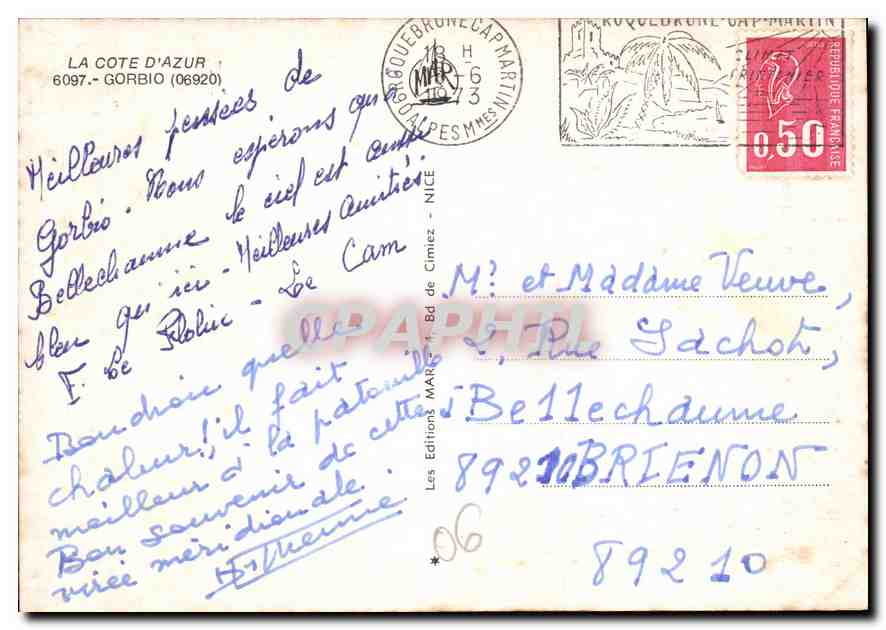 LA COTE D'AZUR
6097.- GORBIO (06920)
Meilleures pensées de
Gorbio - Nous espérons qu'à
Bellechaume le ciel est aussi
bleu qu'ici - Meilleures Amitiés
F. Le Le Cam
quelle
chaleur!, il fait
meilleur à la patouille
Bon souvenir de cette
virée méridionale.
Les Editions MAR - 1, Bd de Cimiez - NICE
ROQUEBRUNE CAP MARTIN
18 H
6
MAR
1973
06 ALPES Mmes
ROQUEBRUNE-CAP-MARTIN
CLIMAT
REPUBLIQUE FRANÇAISE
0,50
CPAPHIL
Mr et Madame Veuve,
2, Rue Jachot,
à Bellechaume
89210 BRIENON
89210
06